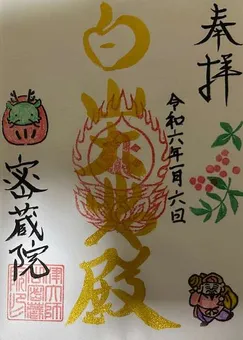 奉拝
令和六年一月六日
白山 殿
密蔵院